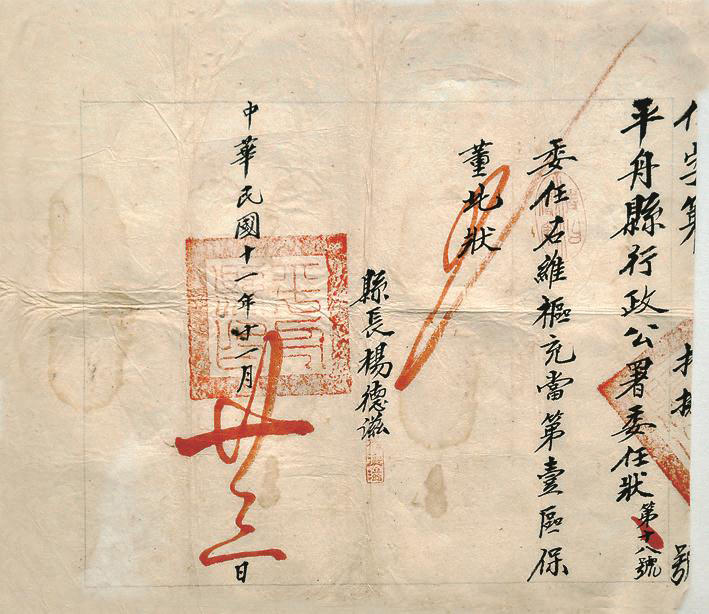 號
平舟縣行政公署委任狀第十八號
委任石維樞充當第壹區保
董此狀
縣長楊德滋
中華民國十一年十一月廿三日
平舟縣印